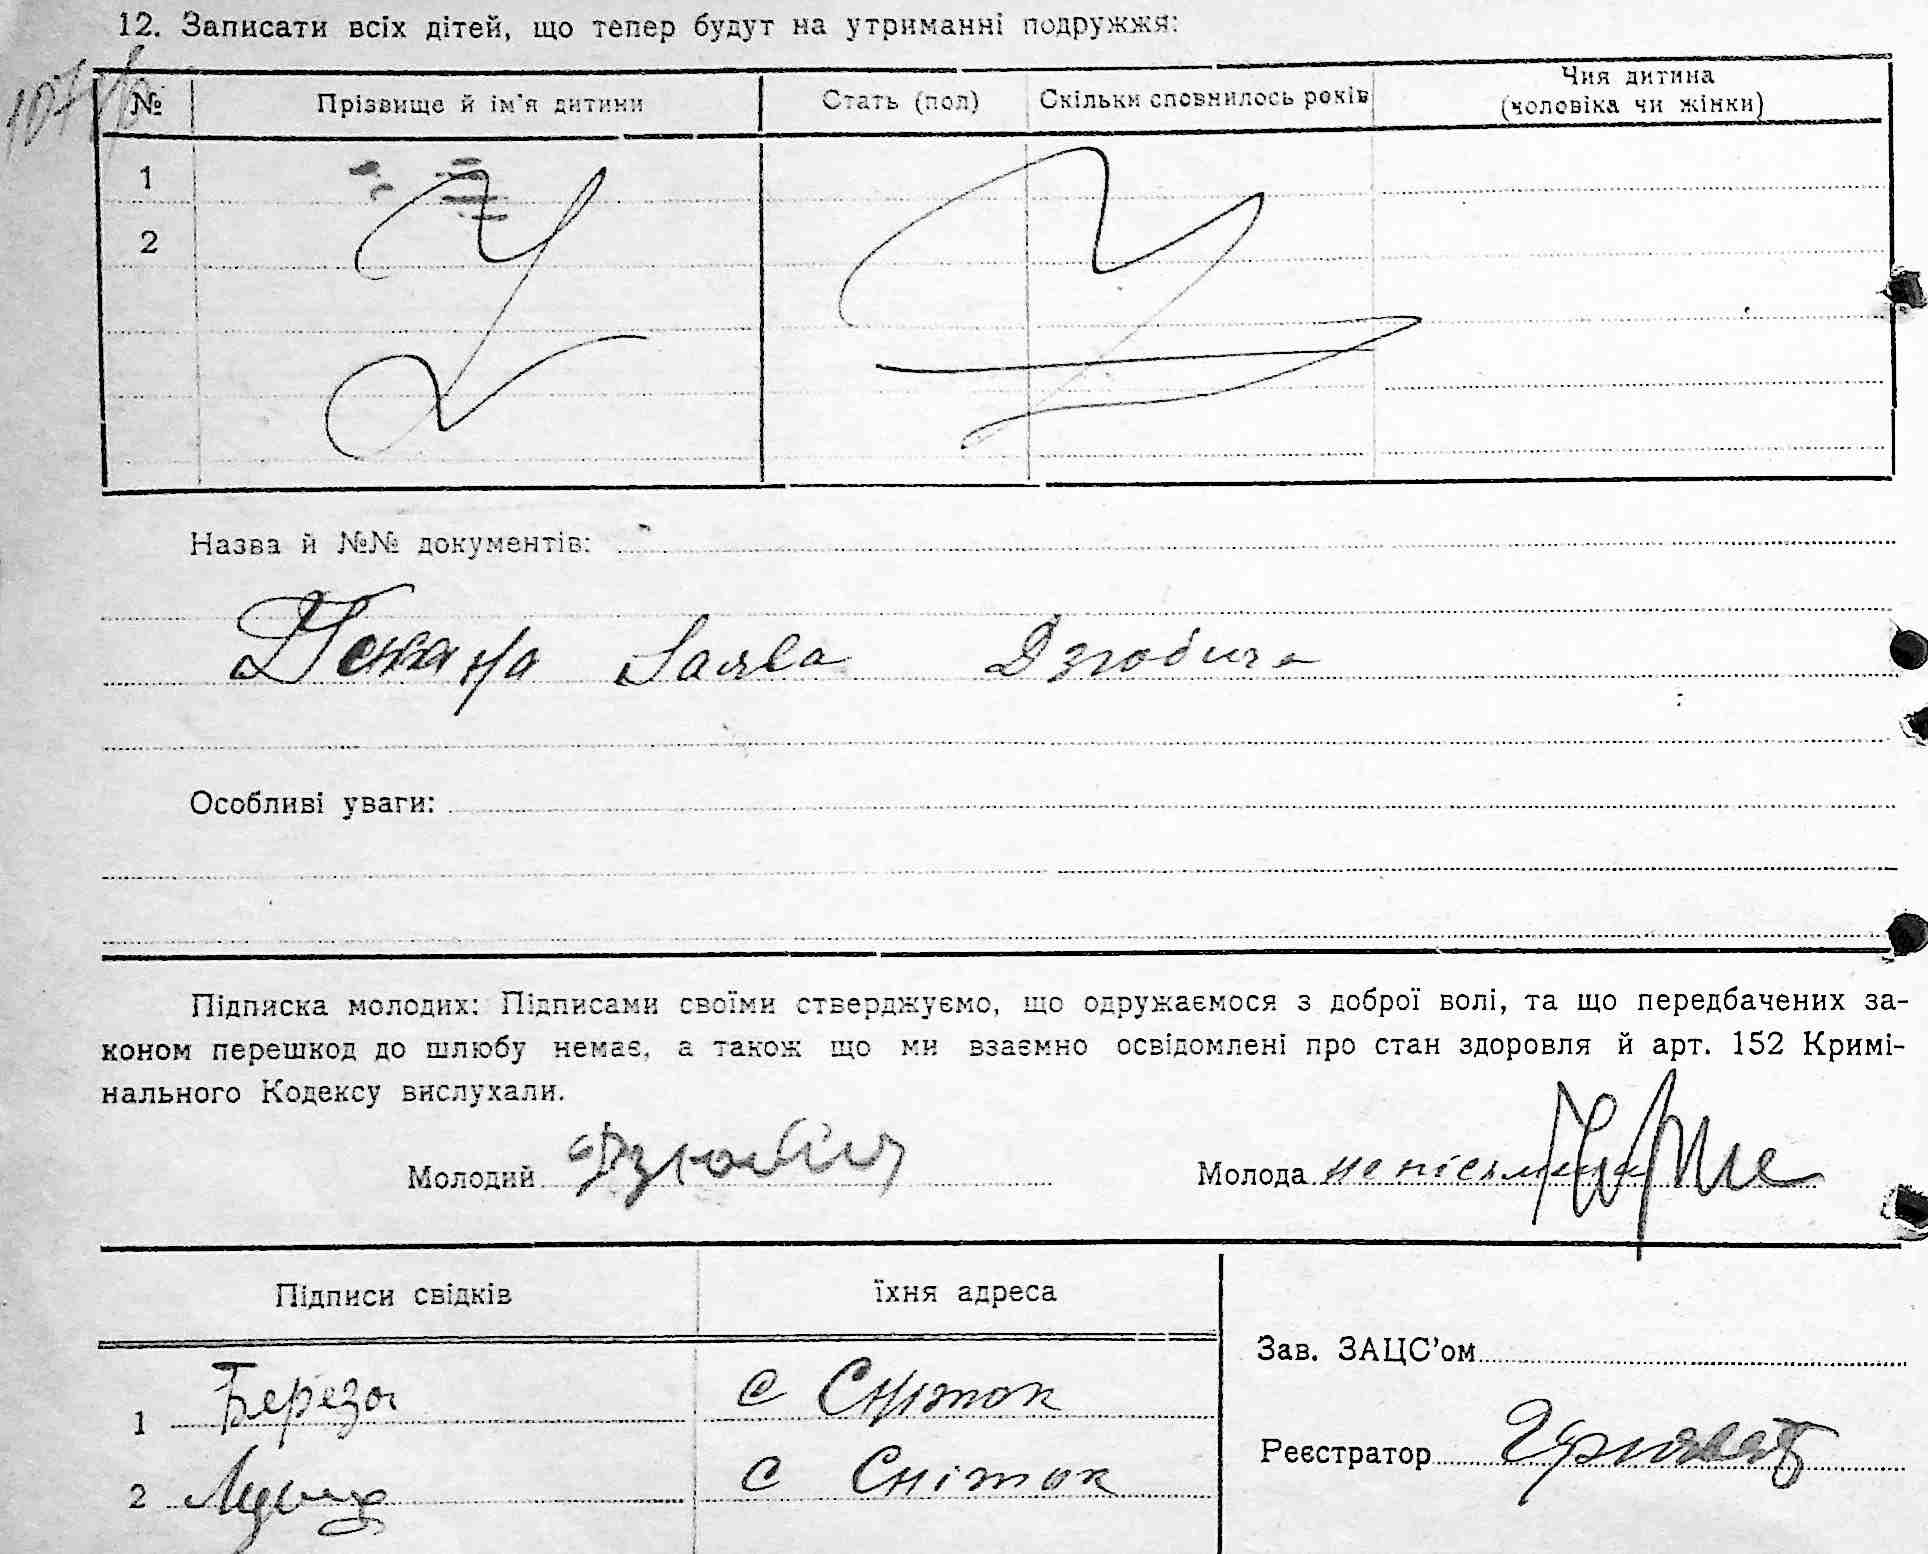 12. Записати всіх дітей, що тепер будут на утриманні подружжя:
№ Прізвище й ім'я дитини Стать (пол) Скільки сповнилось років Чия дитина (чоловіка чи жінки)
1
2
Назва й №№ документів:
Заява Дзюбича
Особливі уваги:
Підписка молодих: Підписами своїми стверджуємо, що одружаємося з доброї волі, та що передбачених за-
коном перешкод до шлюбу немає, а також що ми взаємно освідомлені про стан здоровля й арт. 152 Кримі-
нального Кодексу вислухали.
Молодий Дзюбич Молода неписьменна
Підписи свідків їхня адреса
Зав. ЗАЦС'ом
1 Береза с Сніток
Реєстратор
2 с Сніток